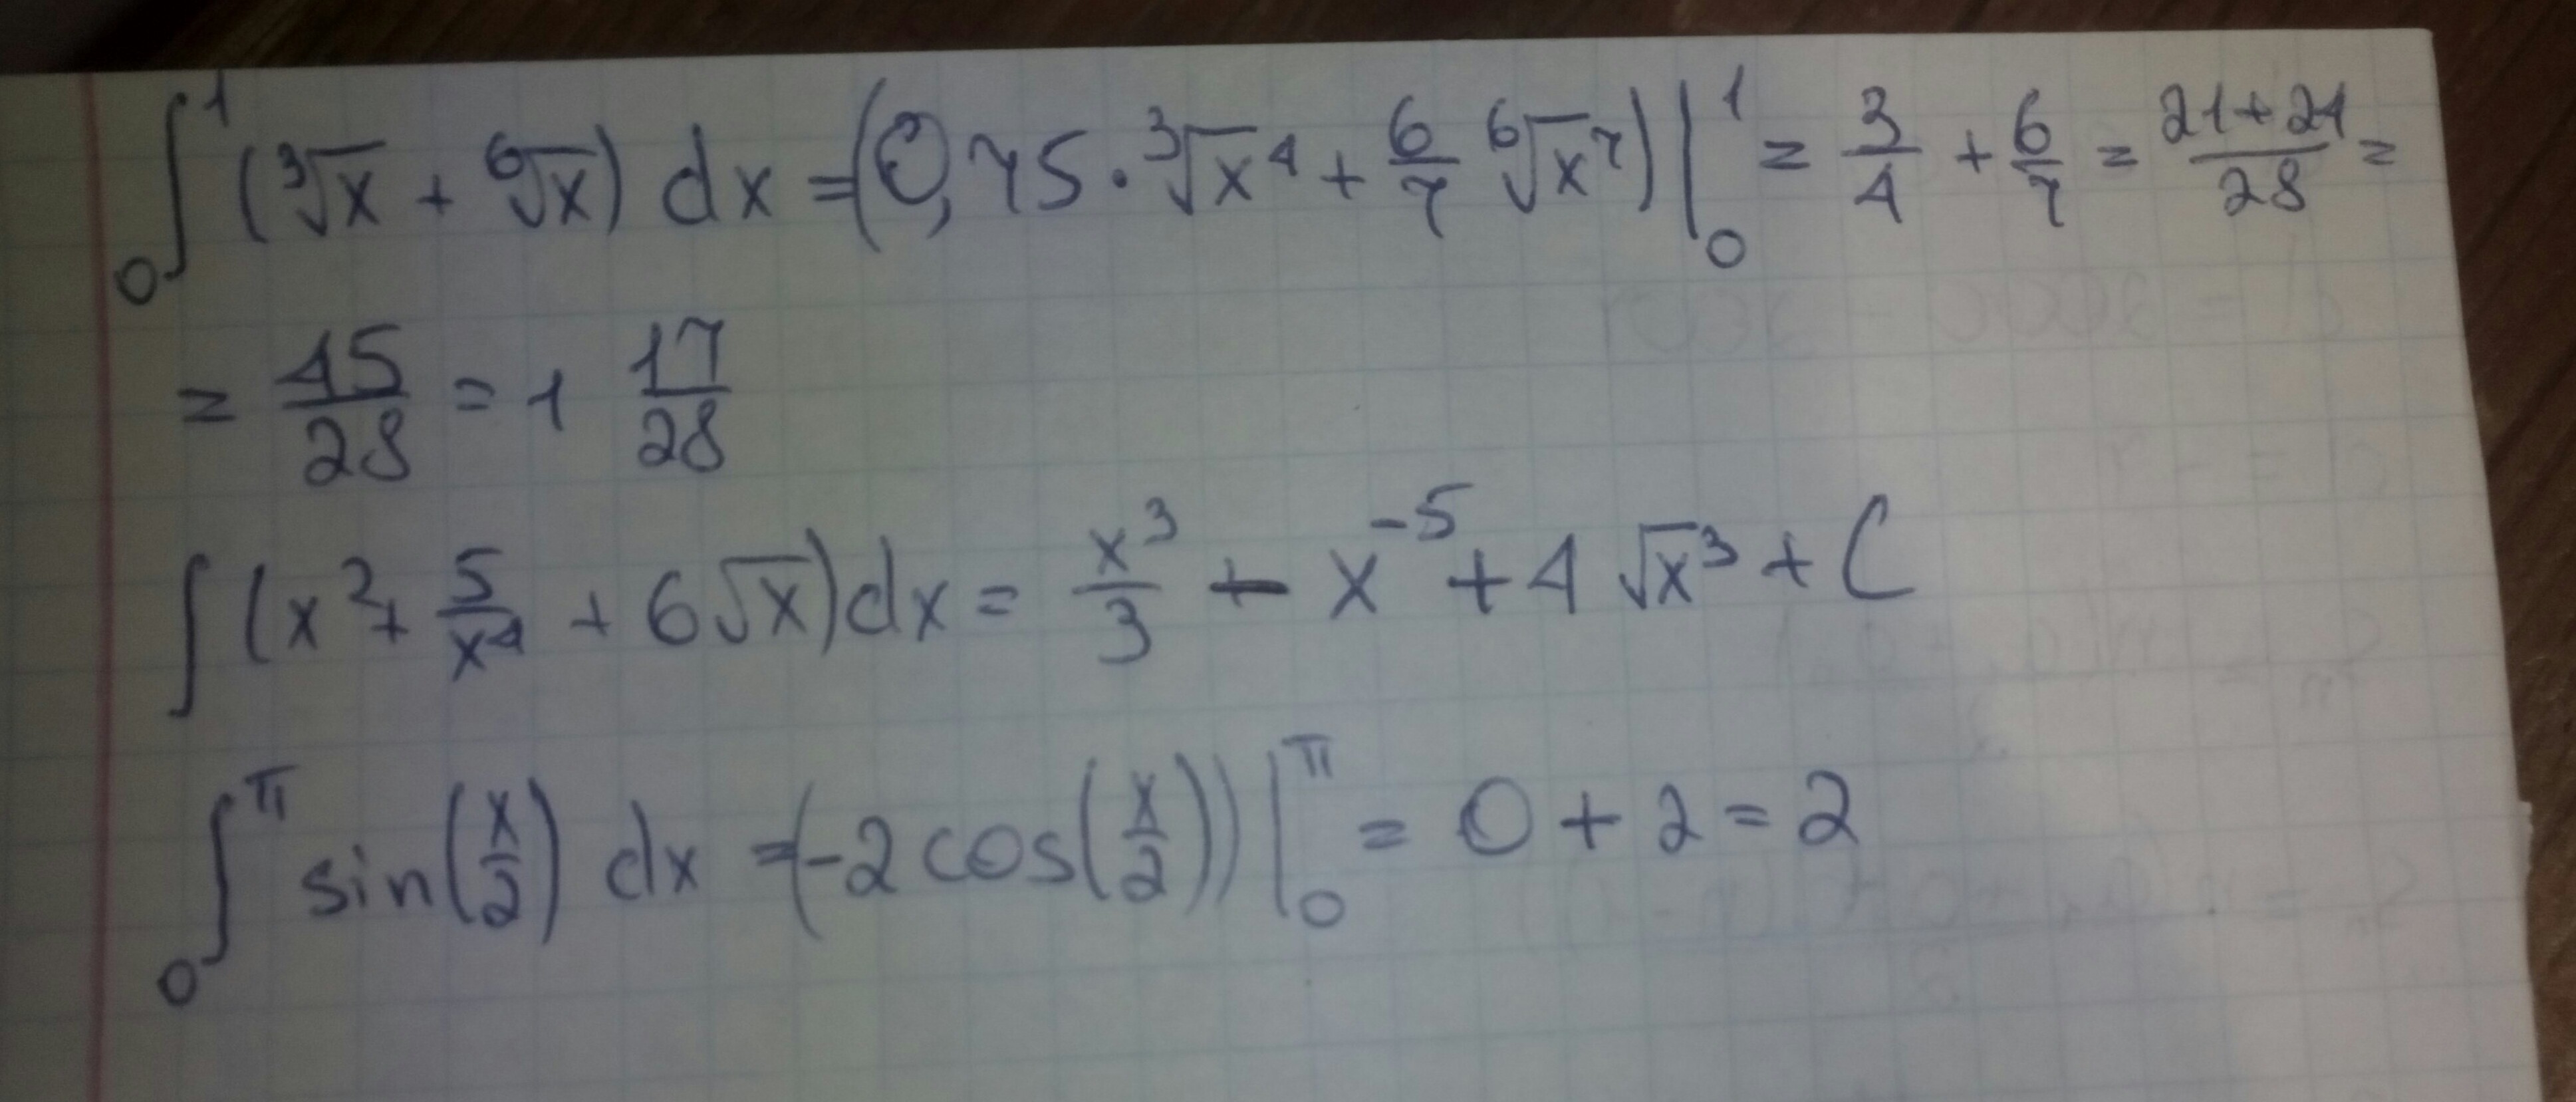 ∫₀¹ (∛x + ⁶√x) dx = (0,75 · ∛x⁴ + 6/7 ⁶√x⁷) |₀¹ = 3/4 + 6/7 = 21+24/28 =
= 45/28 = 1 17/28
∫ (x² + 5/x⁴ + 6√x) dx = x³/3 - x⁻⁵ + 4√x³ + C
∫₀^π sin(x/2) dx = (-2cos(x/2)) |₀^π = 0 + 2 = 2